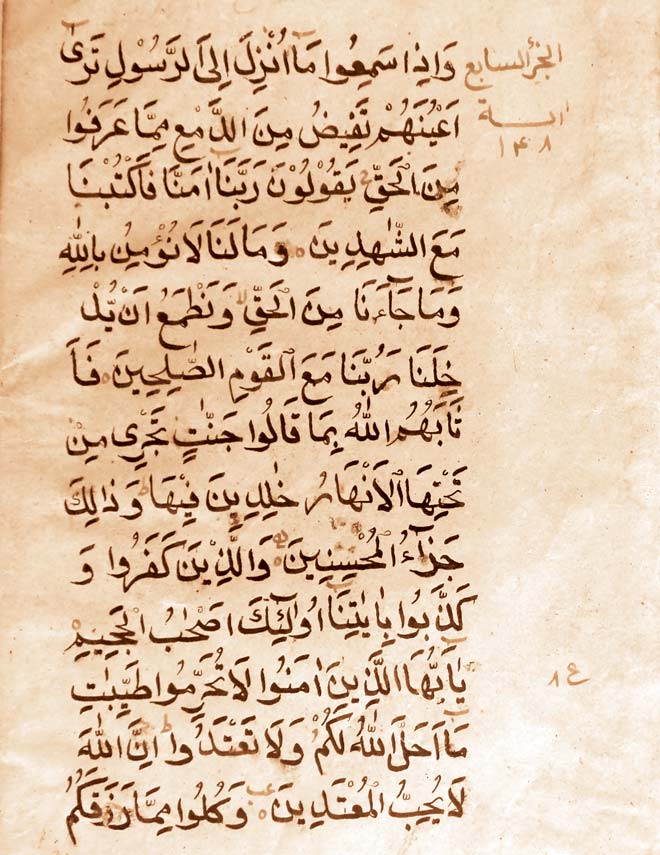 وَاِذَا سَمِعُوا مَا اُنْزِلَ اِلَى الرَّسُولِ تَرٰى
اَعْيُنَهُمْ تَفِيضُ مِنَ الدَّمْعِ مِمَّا عَرَفُوا
مِنَ الْحَقِّ يَقُولُونَ رَبَّنَا اٰمَنَّا فَاكْتُبْنَا
مَعَ الشّٰهِدِينَ وَمَا لَنَا لَا نُؤْمِنُ بِاللّٰهِ
وَمَا جَآءَنَا مِنَ الْحَقِّ وَنَطْمَعُ اَنْ يُدْ
خِلَنَا رَبُّنَا مَعَ الْقَوْمِ الصّٰلِحِينَ فَاَ
ثَابَهُمُ اللّٰهُ بِمَا قَالُوا جَنّٰتٍ تَجْرِى مِنْ
تَحْتِهَا الْاَنْهَارُ خٰلِدِينَ فِيهَا وَذَالِكَ
جَزَآءُ الْمُحْسِنِينَ وَالَّذِينَ كَفَرُوا وَ
كَذَّبُوا بِاٰيٰتِنَا اُولٰٓئِكَ اَصْحٰبُ الْجَحِيمِ
يٰاَيُّهَا الَّذِينَ اٰمَنُوا لَا تُحَرِّمُوا طَيِّبٰتِ
مَا اَحَلَّ اللّٰهُ لَكُمْ وَلَا تَعْتَدُوا اِنَّ اللّٰهَ
لَا يُحِبُّ الْمُعْتَدِينَ وَكُلُوا مِمَّا رَزَقَكُمُ
الجزء السابع
١٤٨